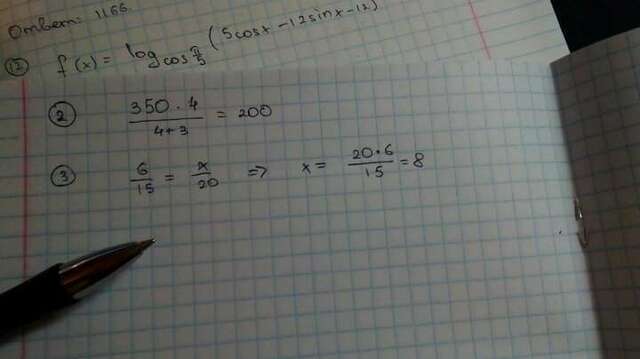 Ответ: 1166
① f(x) = log cos π/5 (5cosx - 12sinx - 12)
② 350 · 4 / 4+3 = 200
③ 6/15 = x/20 => x = 20·6/15 = 8